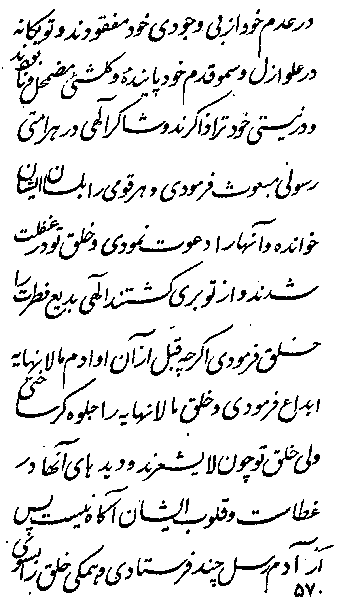 در عدم خود از بی وجودی خود مفقودند و تو یگانه
در علو ازل و سمو قدم خود پاینده و کلشئی مضمحل و نابودند
و در نیستی خود ترا ذاکرند و شاکر الهی در هر امتی
رسولی مبعوث فرمودی و هر قومی را بلسان ایشان
خوانده و آنها را دعوت نمودی و خلق تو در غفلت
شدند و از تو بری گشتند الهی بدیع فطرت را
خلق فرمودی اگرچه قبل از آن اوادم مالانهایه
ابداع فرمودی و خلق مالانهایه را جلوه گر ساختی
ولی خلق تو چون لایشعرند و دیده های آنها در
غطاست و قلوب ایشان آگاه نیست پس
از آدم رسل چند فرستادی و همگی خلق را
۵۷۰